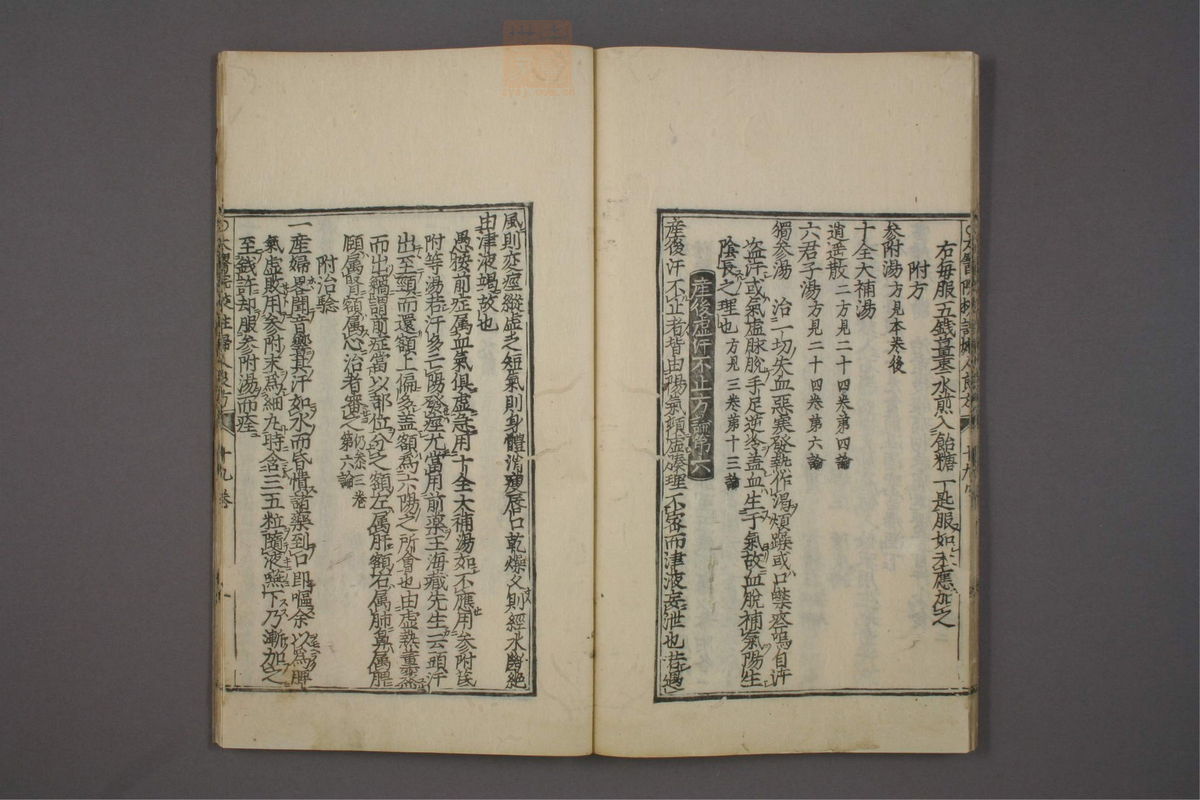 右每服五錢薑棗水煎入飴糖一匙服如未應加之
附方
參附湯方見本卷後
十全大補湯
逍遥散二方見二十四卷第四論
六君子湯方見二十四卷第六論
獨參湯 治一切失血惡寒發熱作渴煩躁或口噤痰鳴自汗
盗汗或氣虛脉脫手足逆冷盖血生于氣故血脫補氣陽生
陰長之理也方見三卷第十三論
産後虚汗不止方論第六
産後汗不止者皆由陽氣頓虛腠理不密而津液妄泄也若遇
風則変痙縱虛乏短氣則身體消瘦唇口乾燥久則經水断絕
由津液竭故也
愚按前症属血氣俱虛急用十全大補湯如不應用参附芪
附等湯若汗多亡陽發痙尤當用前藥王海藏先生云頭汗
出至頸而還額上偏多盖額為六陽之所會也由虚熱熏蒸
而出竊謂前症當以部位分之額左属肝額右属肺鼻属脾
頤属腎額属心治者審之仍参三卷第六論
附治驗
一産婦畧聞音響其汗如水而昏憒諸藥到口即嘔余以為脾
氣虚敗用參附末為細丸時含三五粒隨液嚥下乃漸加之
至錢許却服參附湯而痊
十九卷